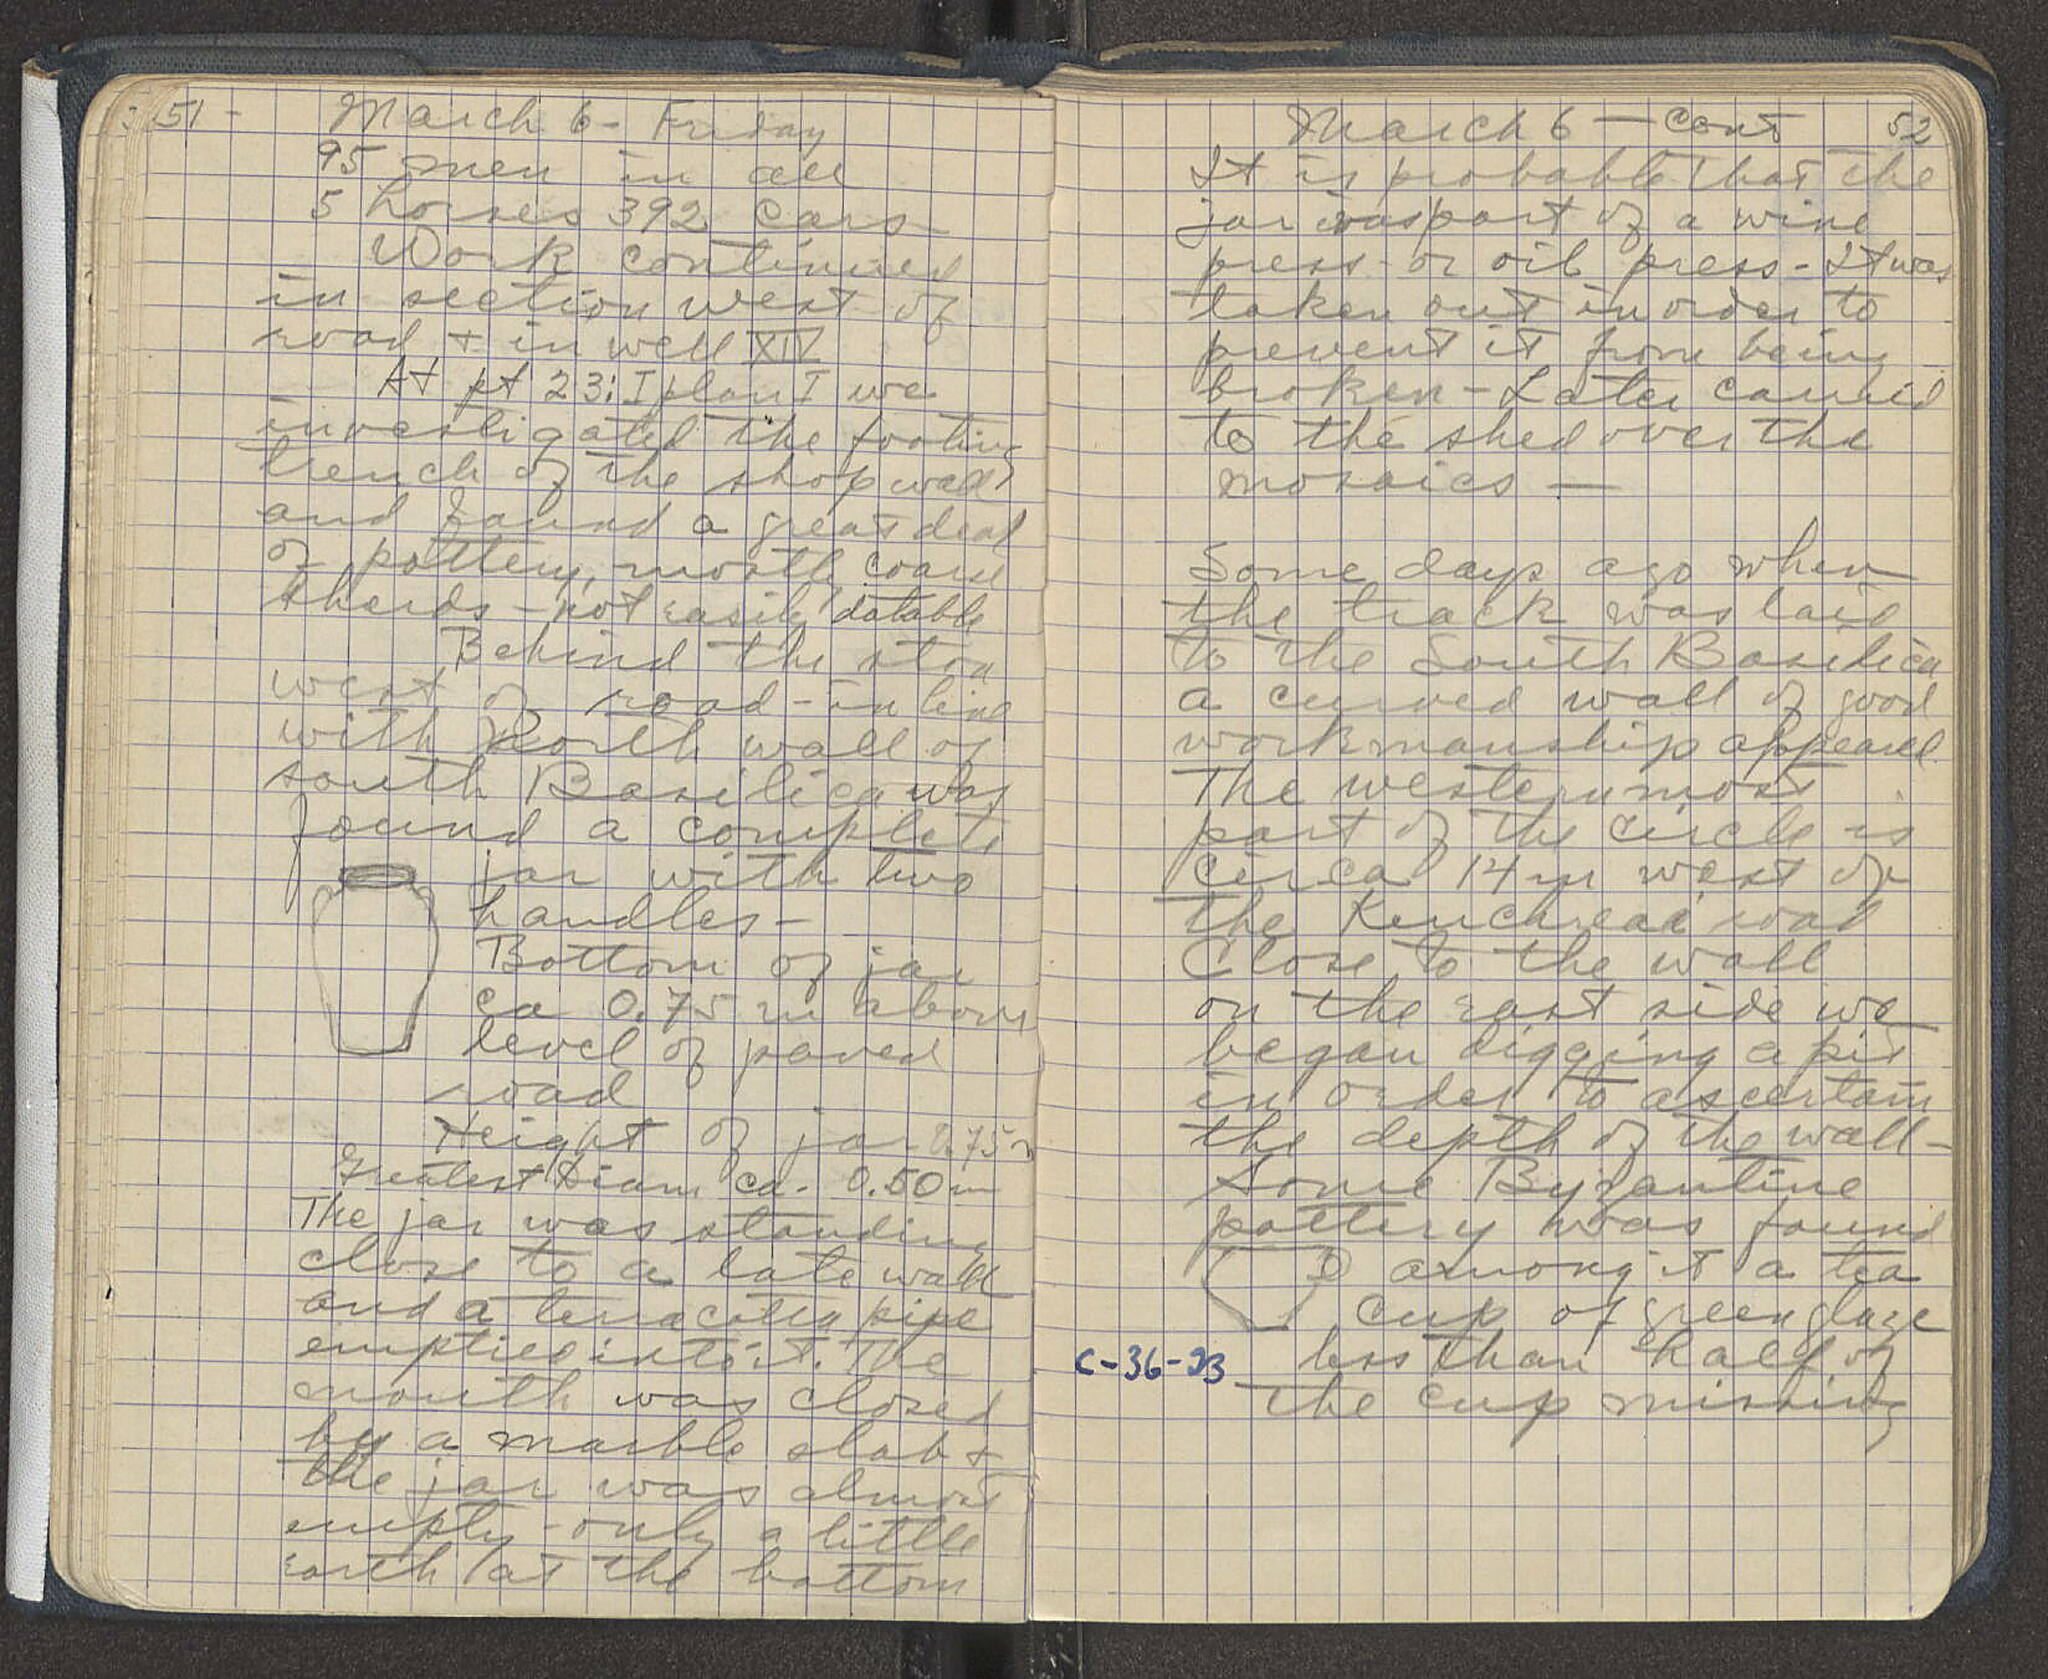 51 -
March 6 - Friday
95 men in all
5 horses 392 cars
Work continued
in section west of
road + in well XIV
At pt 23:I plan I we
investigated the footing
trench of the shop wall
and found a great deal
of pottery, mostly coarse
sherds - not easily datable
Behind the stoa
west of road - in line
with North wall of
south Basilica was
found a complete
jar with two
handles -
Bottom of jar
ca 0.75 m above
level of paved
road
Height of jar 0.75 m
Greatest Diam ca. 0.50 m
The jar was standing
close to a late wall
and a terracotta pipe
emptied into it. The
mouth was closed
by a marble slab +
the jar was almost
empty - only a little
earth at the bottom
March 6 - Cont 52
It is probable that the
jar was part of a wine
press - or oil press - It was
taken out in order to
prevent it from being
broken - Later carried
to the shed over the
mosaics -
Some days ago when
the track was laid
to the South Basilica
a curved wall of good
workmanship appeared.
The westernmost
part of the circle is
circa 14 m west of
the Kenchreai road
Close to the wall
on the east side we
began digging a pit
in order to ascertain
the depth of the wall -
Some Byzantine
pottery was found
among it a tea
cup of green glaze
less than half of
C-36-23
the cup missing